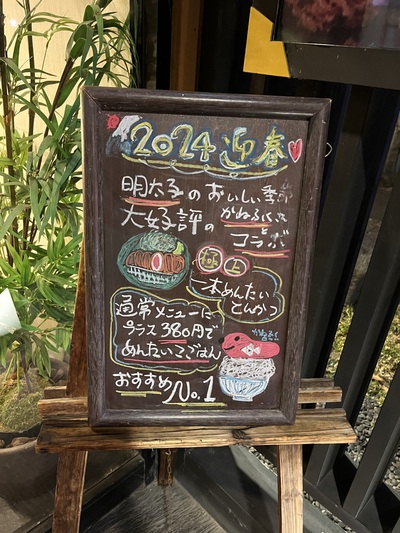 2024 迎春
明太子のおいしい季節
大好評のかねふくさんと
コラボ
極上
一本めんたい
とんかつ
通常メニューに
プラス380円で
めんたいこごはん
かねふく
おすすめNo.1